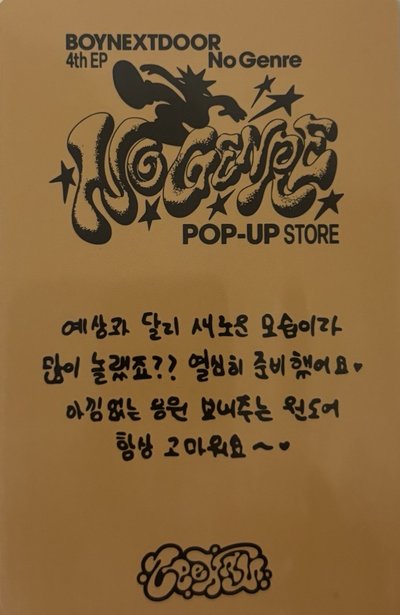 BOYNEXTDOOR
4th EP No Genre
NO GENRE
POP-UP STORE
예상과 달리 새로운 모습이라
많이 놀랬죠?? 열심히 준비했어요♥
아낌없는 응원 보내주는 원도어
항상 고마워요~♥